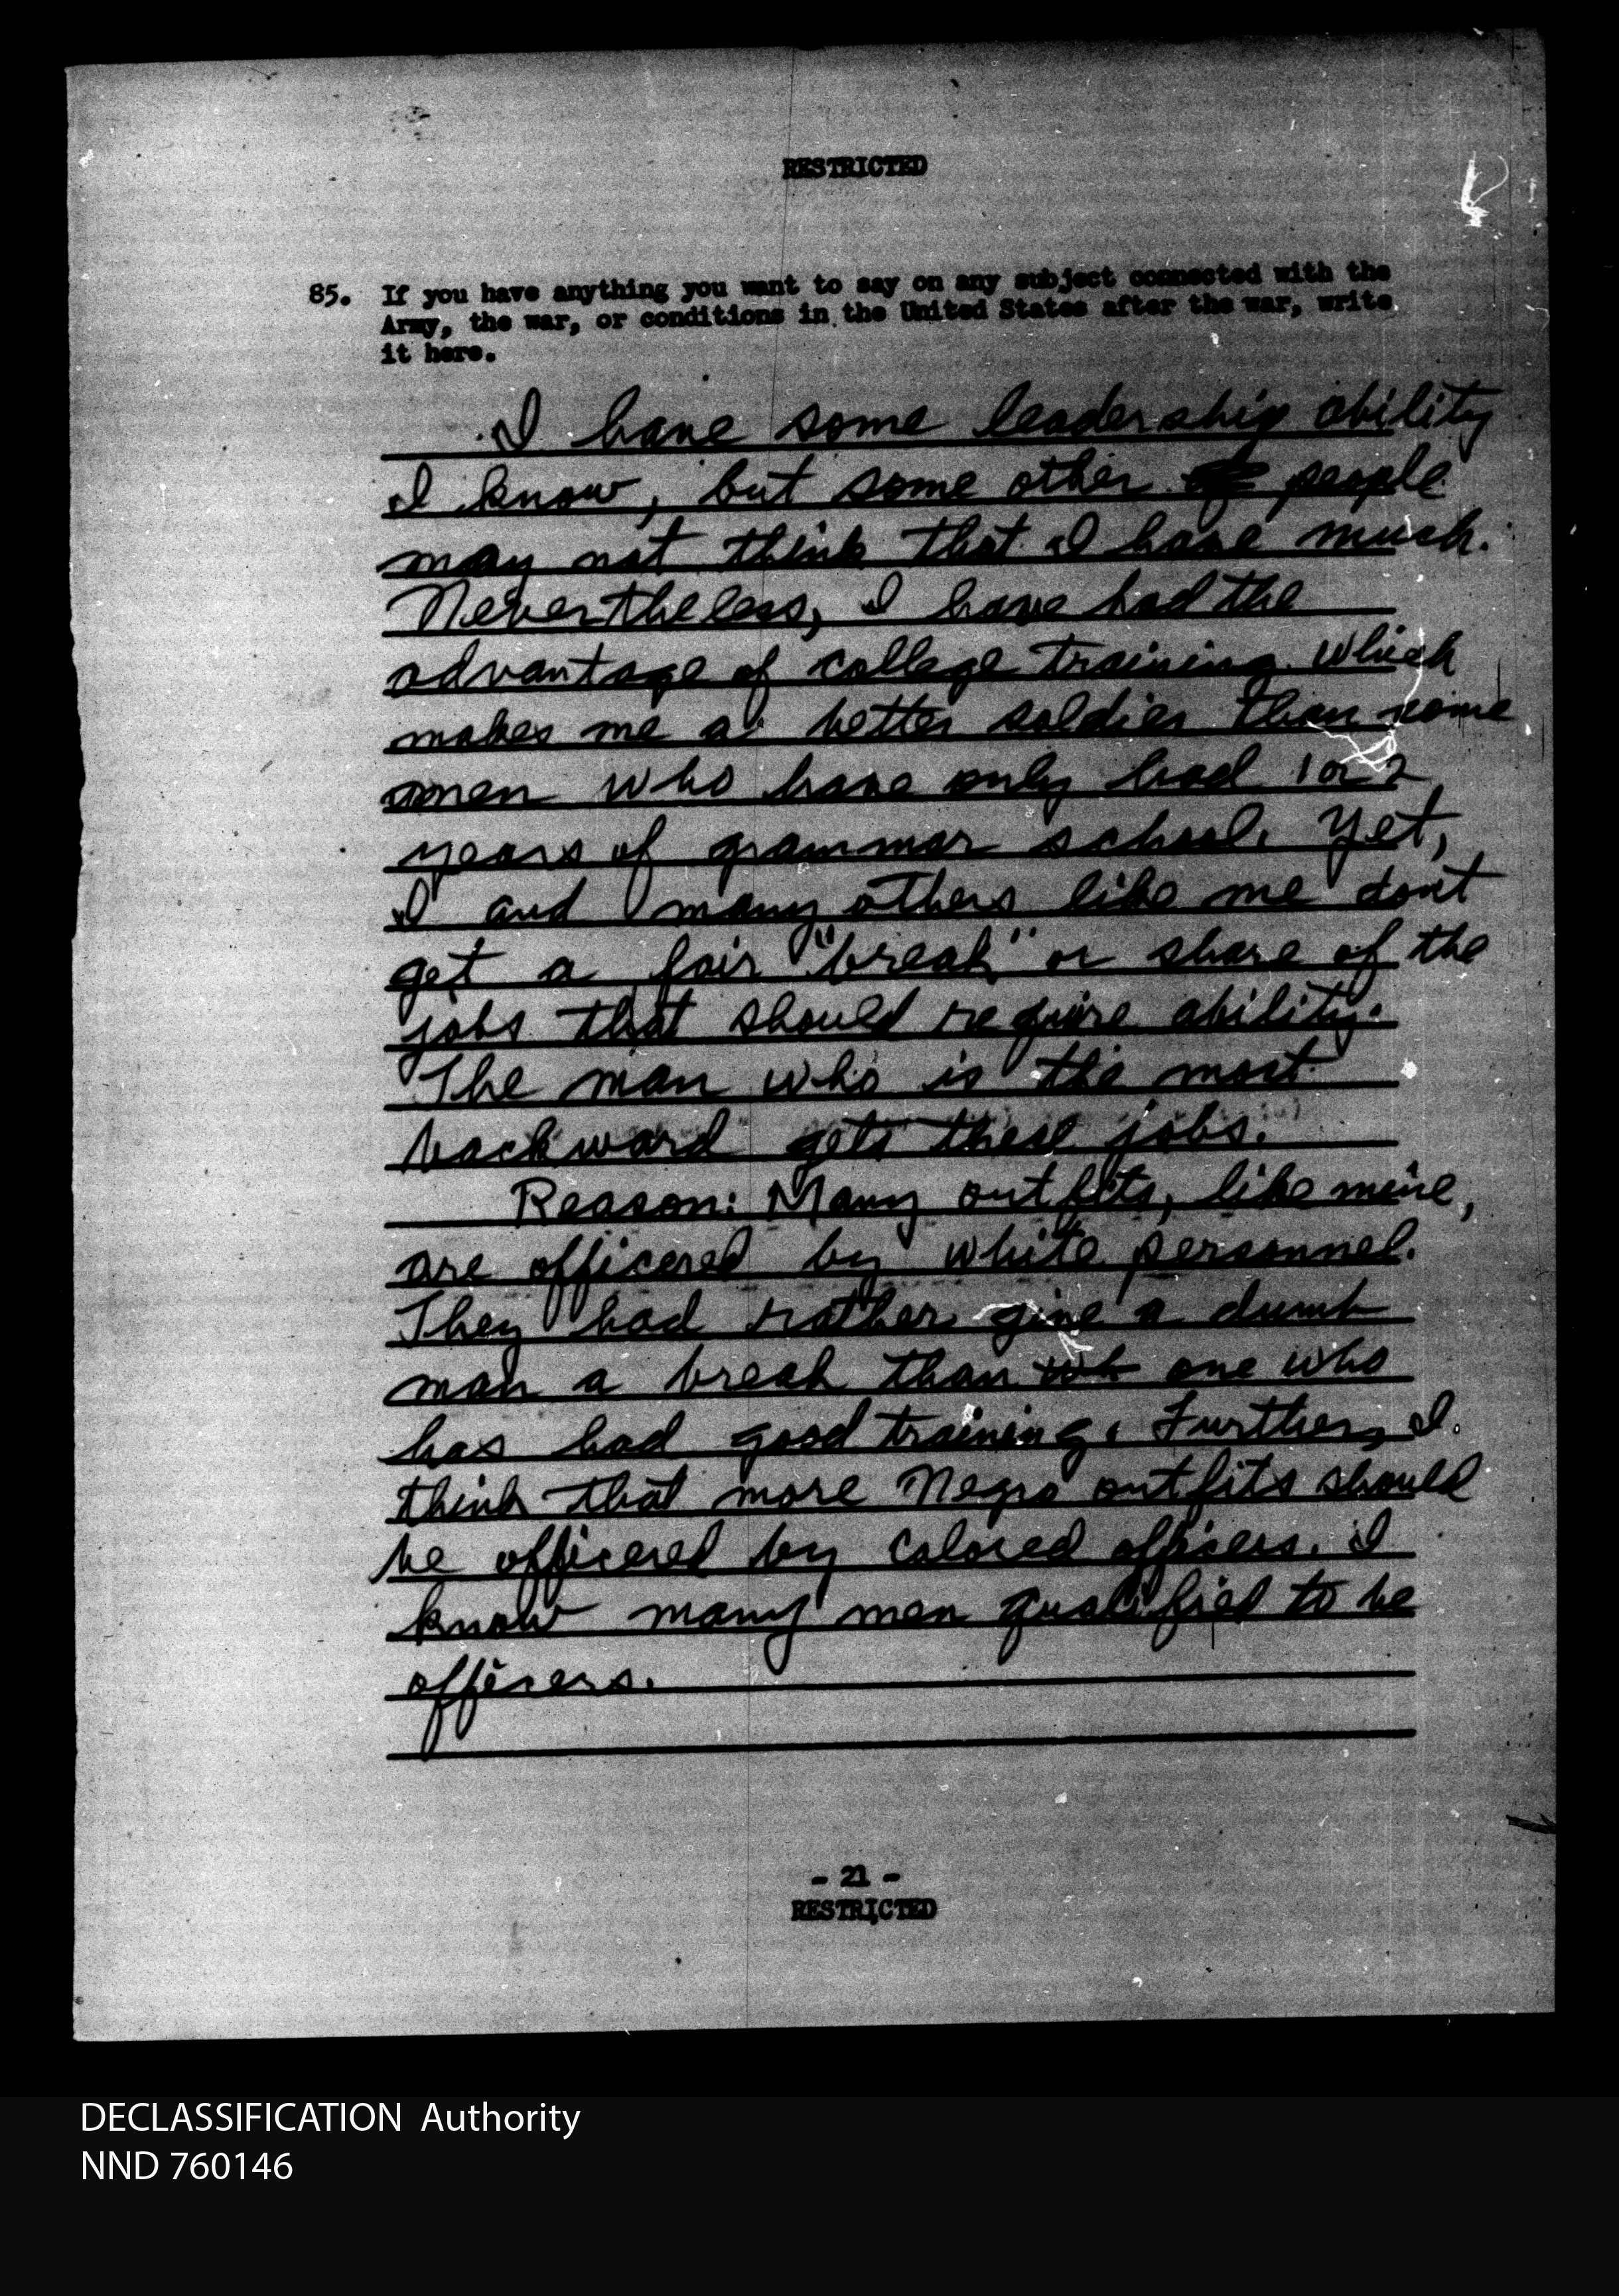 RESTRICTED
85. If you have anything you want to say on any subject connected with the
Army, the war, or conditions in the United States after the war, write
it here.
I have some leadership ability
I know, but some other people
may not think that I have much.
Nevertheless, I have had the
advantage of college training which
makes me a better soldier than some
men who have only had 1 or 2
years of grammar school. Yet,
I and many others like me don't
get a fair "break" or share of the
jobs that should require ability.
The man who is the most
backward gets these jobs.
Reason: Many outfits, like mine,
are officered by white personnel.
They had rather give a dumb
man a break than one who
has had good training. Further, I
think that more Negro outfits should
be officered by Colored officers. I
know many men qualified to be
officers.
- 21 -
RESTRICTED
DECLASSIFICATION Authority
NND 760146